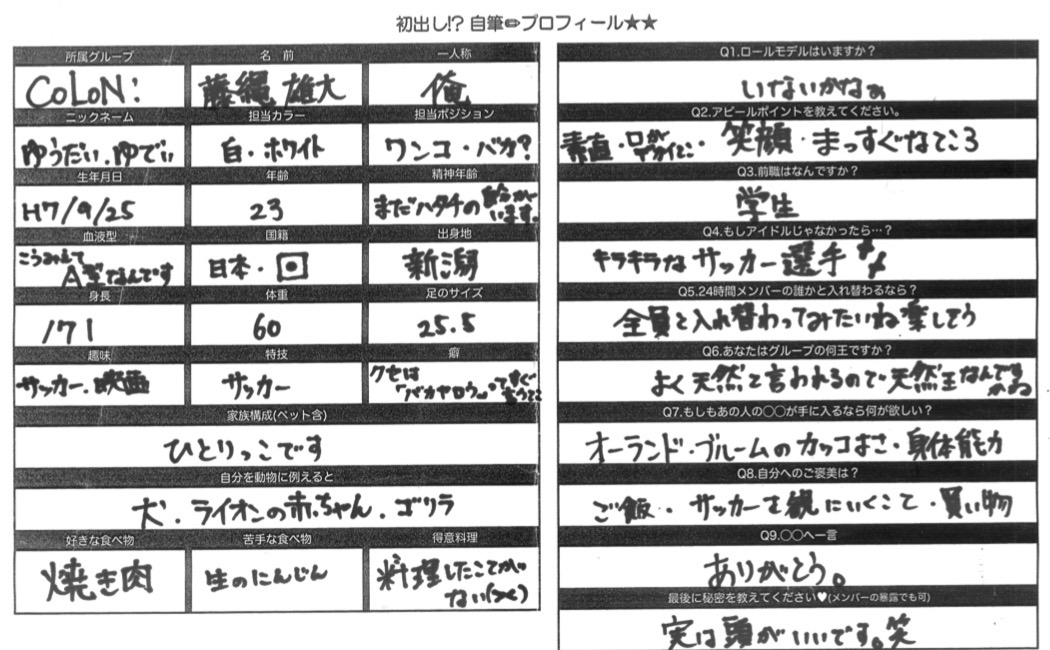 初出し!? 自筆✏プロフィール★★
所属グループ 名 前 一人称
CoLoN: 藤縄 雄大 俺
ニックネーム 担当カラー 担当ポジション
ゆうだい、ゆでぃ 白・ホワイト ワンコ・バカ?
生年月日 年齢 精神年齢
H7/9/25 23 まだハタチの齢がいます。
血液型 国籍 出身地
こうみえてA型なんです 日本・ 新潟
身長 体重 足のサイズ
171 60 25.5
趣味 特技 癖
サッカー、映画 サッカー クセは「バカヤロウ」ってすぐ言うとこ
家族構成(ペット含)
ひとりっこです
自分を動物に例えると
犬、ライオンの赤ちゃん、ゴリラ
好きな食べ物 苦手な食べ物 得意料理
焼き肉 生のにんじん 料理したことがない(><)
Q1.ロールモデルはいますか?
いないかなぁ
Q2.アピールポイントを教えてください。
素直・口がデカイとこ・笑顔・まっすぐなところ
Q3.前職はなんですか?
学生
Q4.もしアイドルじゃなかったら…?
キラキラなサッカー選手
Q5.24時間メンバーの誰かと入れ替わるなら?
全員と入れ替わってみたいね楽しそう
Q6.あなたはグループの何王ですか?
よく天然と言われるので天然王なんですかね
Q7.もしもあの人の○○が手に入るなら何が欲しい?
オーランド・ブルームのカッコよさ・身体能力
Q8.自分へのご褒美は?
ご飯・サッカーを観にいくこと・買い物
Q9.○○へ一言
ありがとう。
最後に秘密を教えてください♥(メンバーの暴露でも可)
実は頭がいいです。笑